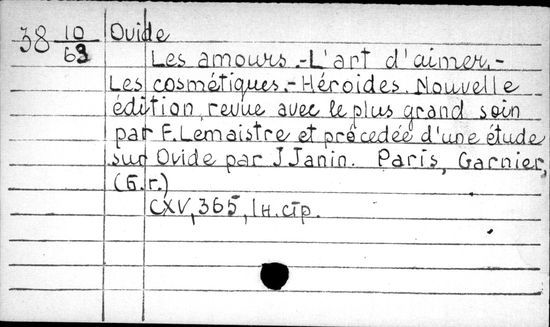 38 10/63 Ovide
Les amours.-L'art d'aimer.-
Les cosmétiques.-Héroides. Nouvelle
édition, revue avec le plus grand soin
par F. Lemaistre et précedée d'une étude
sur Ovide par J Janin. Paris, Garnier,
(б.г.)
CXV, 365, 1 н. стр.